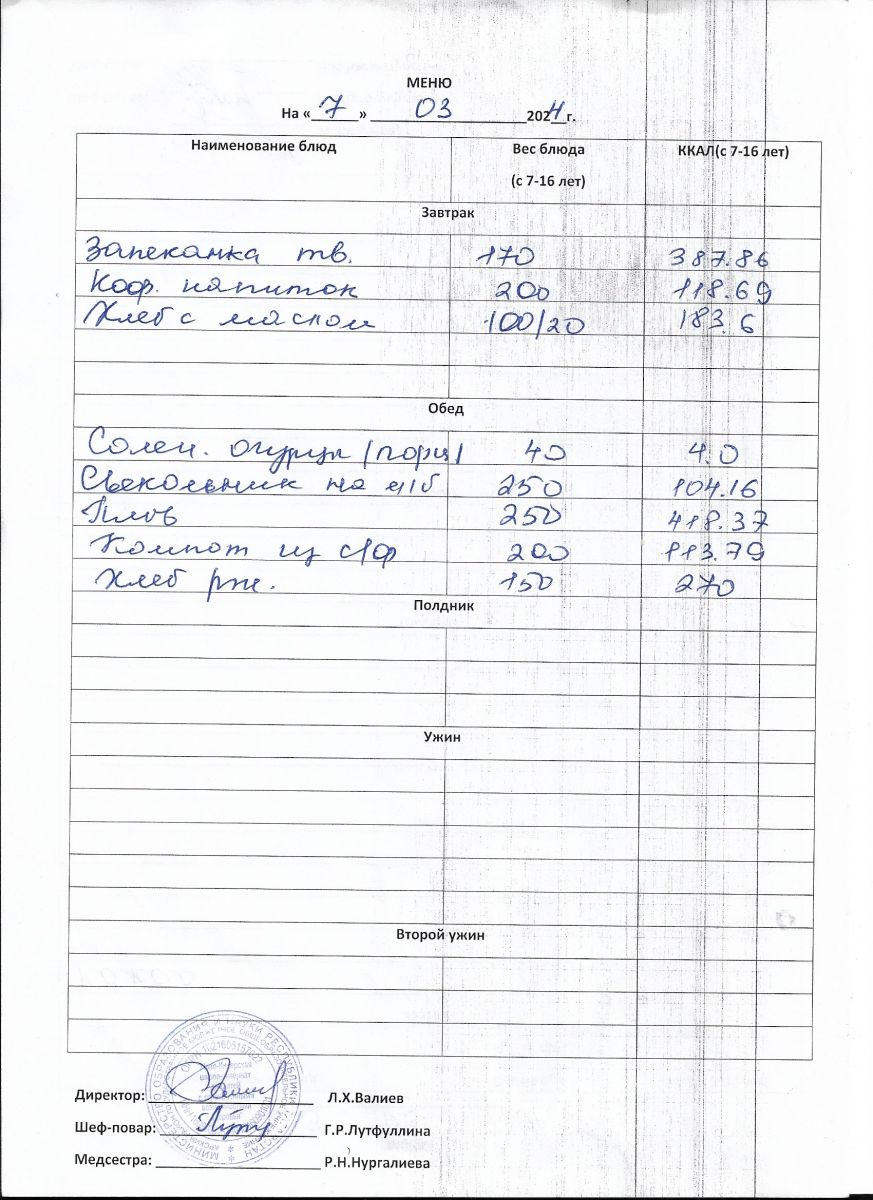 МЕНЮ
На « 7 » 03 2024 г.
Наименование блюд Вес блюда (с 7-16 лет) ККАЛ(с 7-16 лет)
Завтрак
Запеканка тв. 170 387.86
Коф. напиток 200 118.69
Хлеб с маслом 100/20 183.6
Обед
Солен. огурцы /порц/ 40 4.0
Свекольник на м/б 250 104.16
Плов 250 418.37
Компот из с/ф 200 113.79
Хлеб рж. 150 270
Полдник
Ужин
Второй ужин
Директор: Л.Х.Валиев
Шеф-повар: Г.Р.Лутфуллина
Медсестра: Р.Н.Нургалиева
МИНИСТЕРСТВО ОБРАЗОВАНИЯ И НАУКИ РЕСПУБЛИКИ ТАТАРСТАН